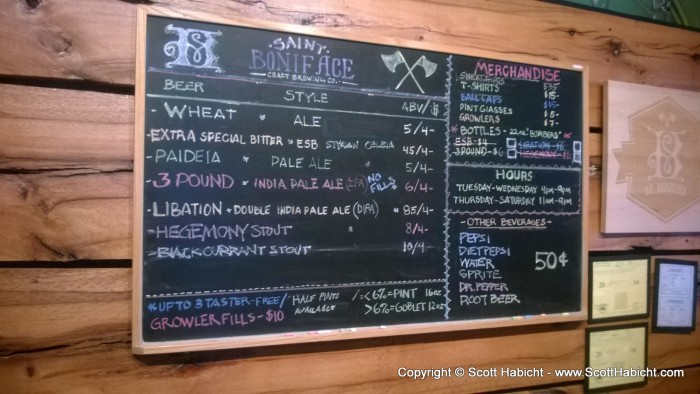 B
SAINT
BONIFACE
CRAFT BREWING CO.
BEER STYLE ABV/$
- WHEAT * ALE 5/4-
- EXTRA SPECIAL BITTER * ESB 45/4-
- PAIDEIA * PALE ALE * 5/4-
- 3 POUND * INDIA PALE ALE (IPA) NO FILLS 6/4-
- LIBATION * DOUBLE INDIA PALE ALE (DIPA) * 85/4-
- HEGEMONY STOUT * 8/4-
- BLACK CURRANT STOUT 10/4-
*UP TO 3 TASTER-FREE/ HALF PINTS AVAILABLE /:< 6%=PINT 16oz
GROWLER FILLS-$10 >6%=GOBLET 12oz
MERCHANDISE
SWEATSHIRTS $35-
T-SHIRTS $15-
BALL CAPS $15-
PINT GLASSES $5-
GROWLERS $7-
* BOTTLES - 22oz "BOMBERS"
ESB-$4 LIBATION
3 POUND-$6 HEGEMONY
HOURS
TUESDAY-WEDNESDAY 4pm-9pm
THURSDAY-SATURDAY 11am-9pm
-OTHER BEVERAGES-
PEPSI
DIET PEPSI
WATER 50¢
SPRITE
DR. PEPPER
ROOT BEER
B
Copyright © Scott Habicht - www.ScottHabicht.com